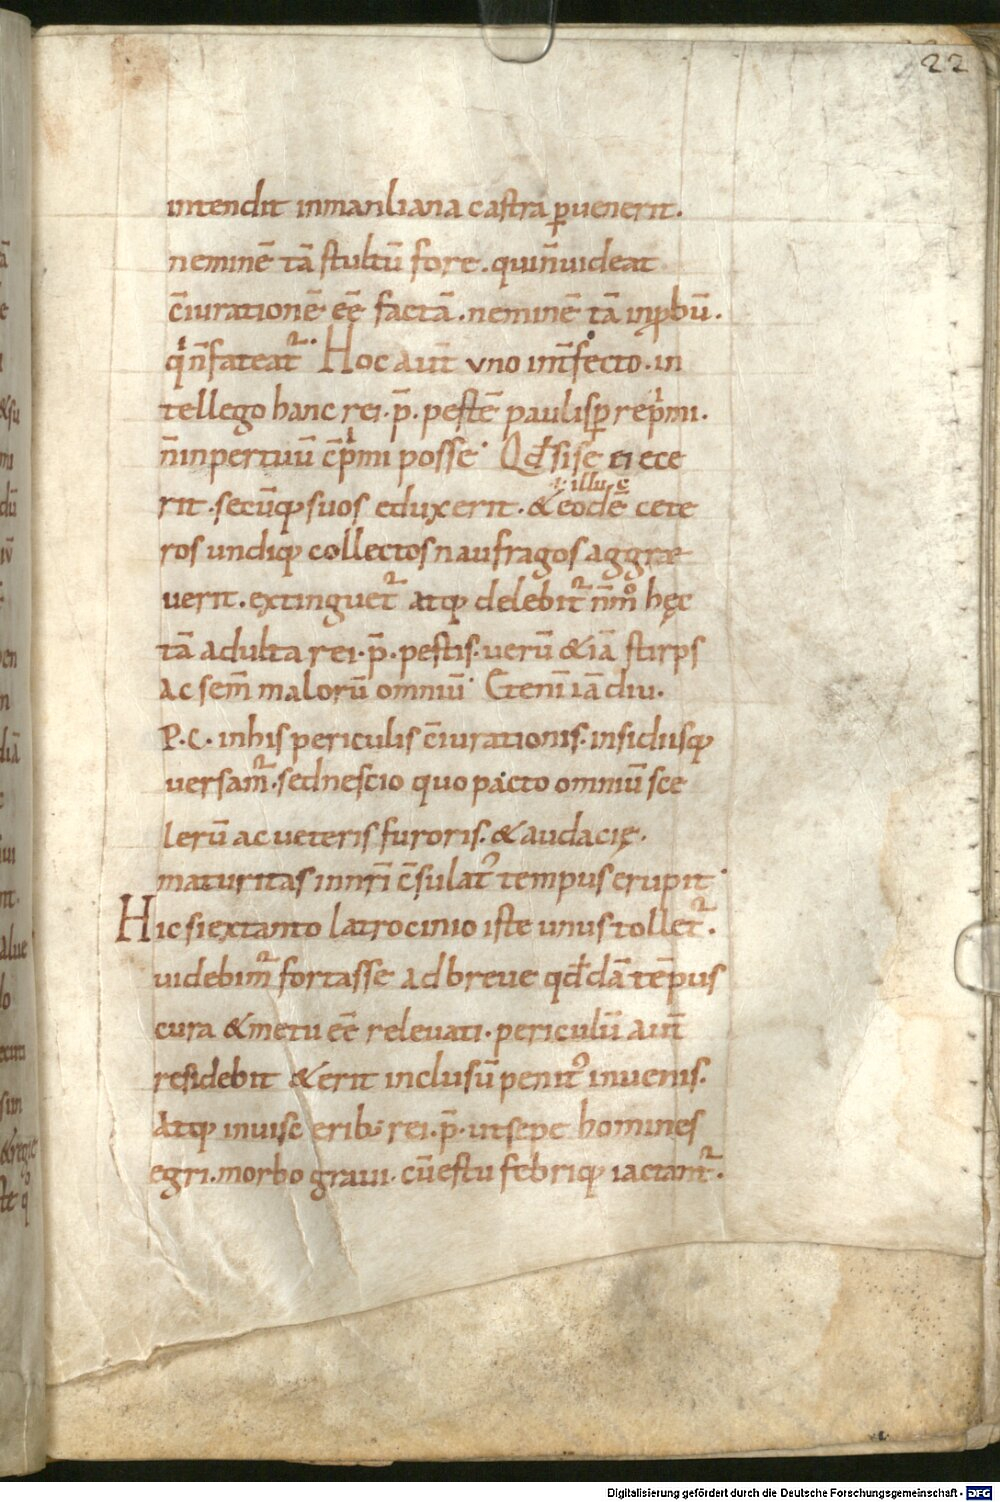 22
intendit inmanliana castra ꝑuenerit.
neminē tā stultū fore. quin̄uideat
c̄iurationē eē factā. neminē tā inꝓbū.
qͥn̄fateat᷑. Hoc aut̄ uno int̄fecto. in
tellego hanc rei. p̄. pestē paulisꝑ rep̍mi.
n̄inpertuū c̄pͥmi posse. Qd̄sise eiece
rit. secūq; suos eduxerit. & eodē cete
ros undiq; collectos naufragos aggre
uerit. extinguet᷑ atq; delebit᷑ n̄m̊ hęc
tā adulta rei. p̄. pestis. uerū & iā stirps
ac sem̄ malorū omniū. Eteni iā diu.
P. C. inhis periculis c̄iurationis. insidiisq;
uersam᷑. sednescio quo pacto omniū sce
lerū ac ueteris furoris. & audacię.
maturitas innr̄i c̄sulat᷒ tempus erupit.
Hic siextanto latrocinio iste unus tollet᷑.
uidebim᷑ fortasse ad breue qd̄dā tēpus
cura & metu eē releuati. periculū aut̄
residebit & erit inclusū penit᷒ inuenis.
Atq; inuisceribꝫ rei. p̄. utsepe homines
egri. morbo graui. cū estu febriq; iactant᷑.
Digitalisierung gefördert durch die Deutsche Forschungsgemeinschaft - DFG